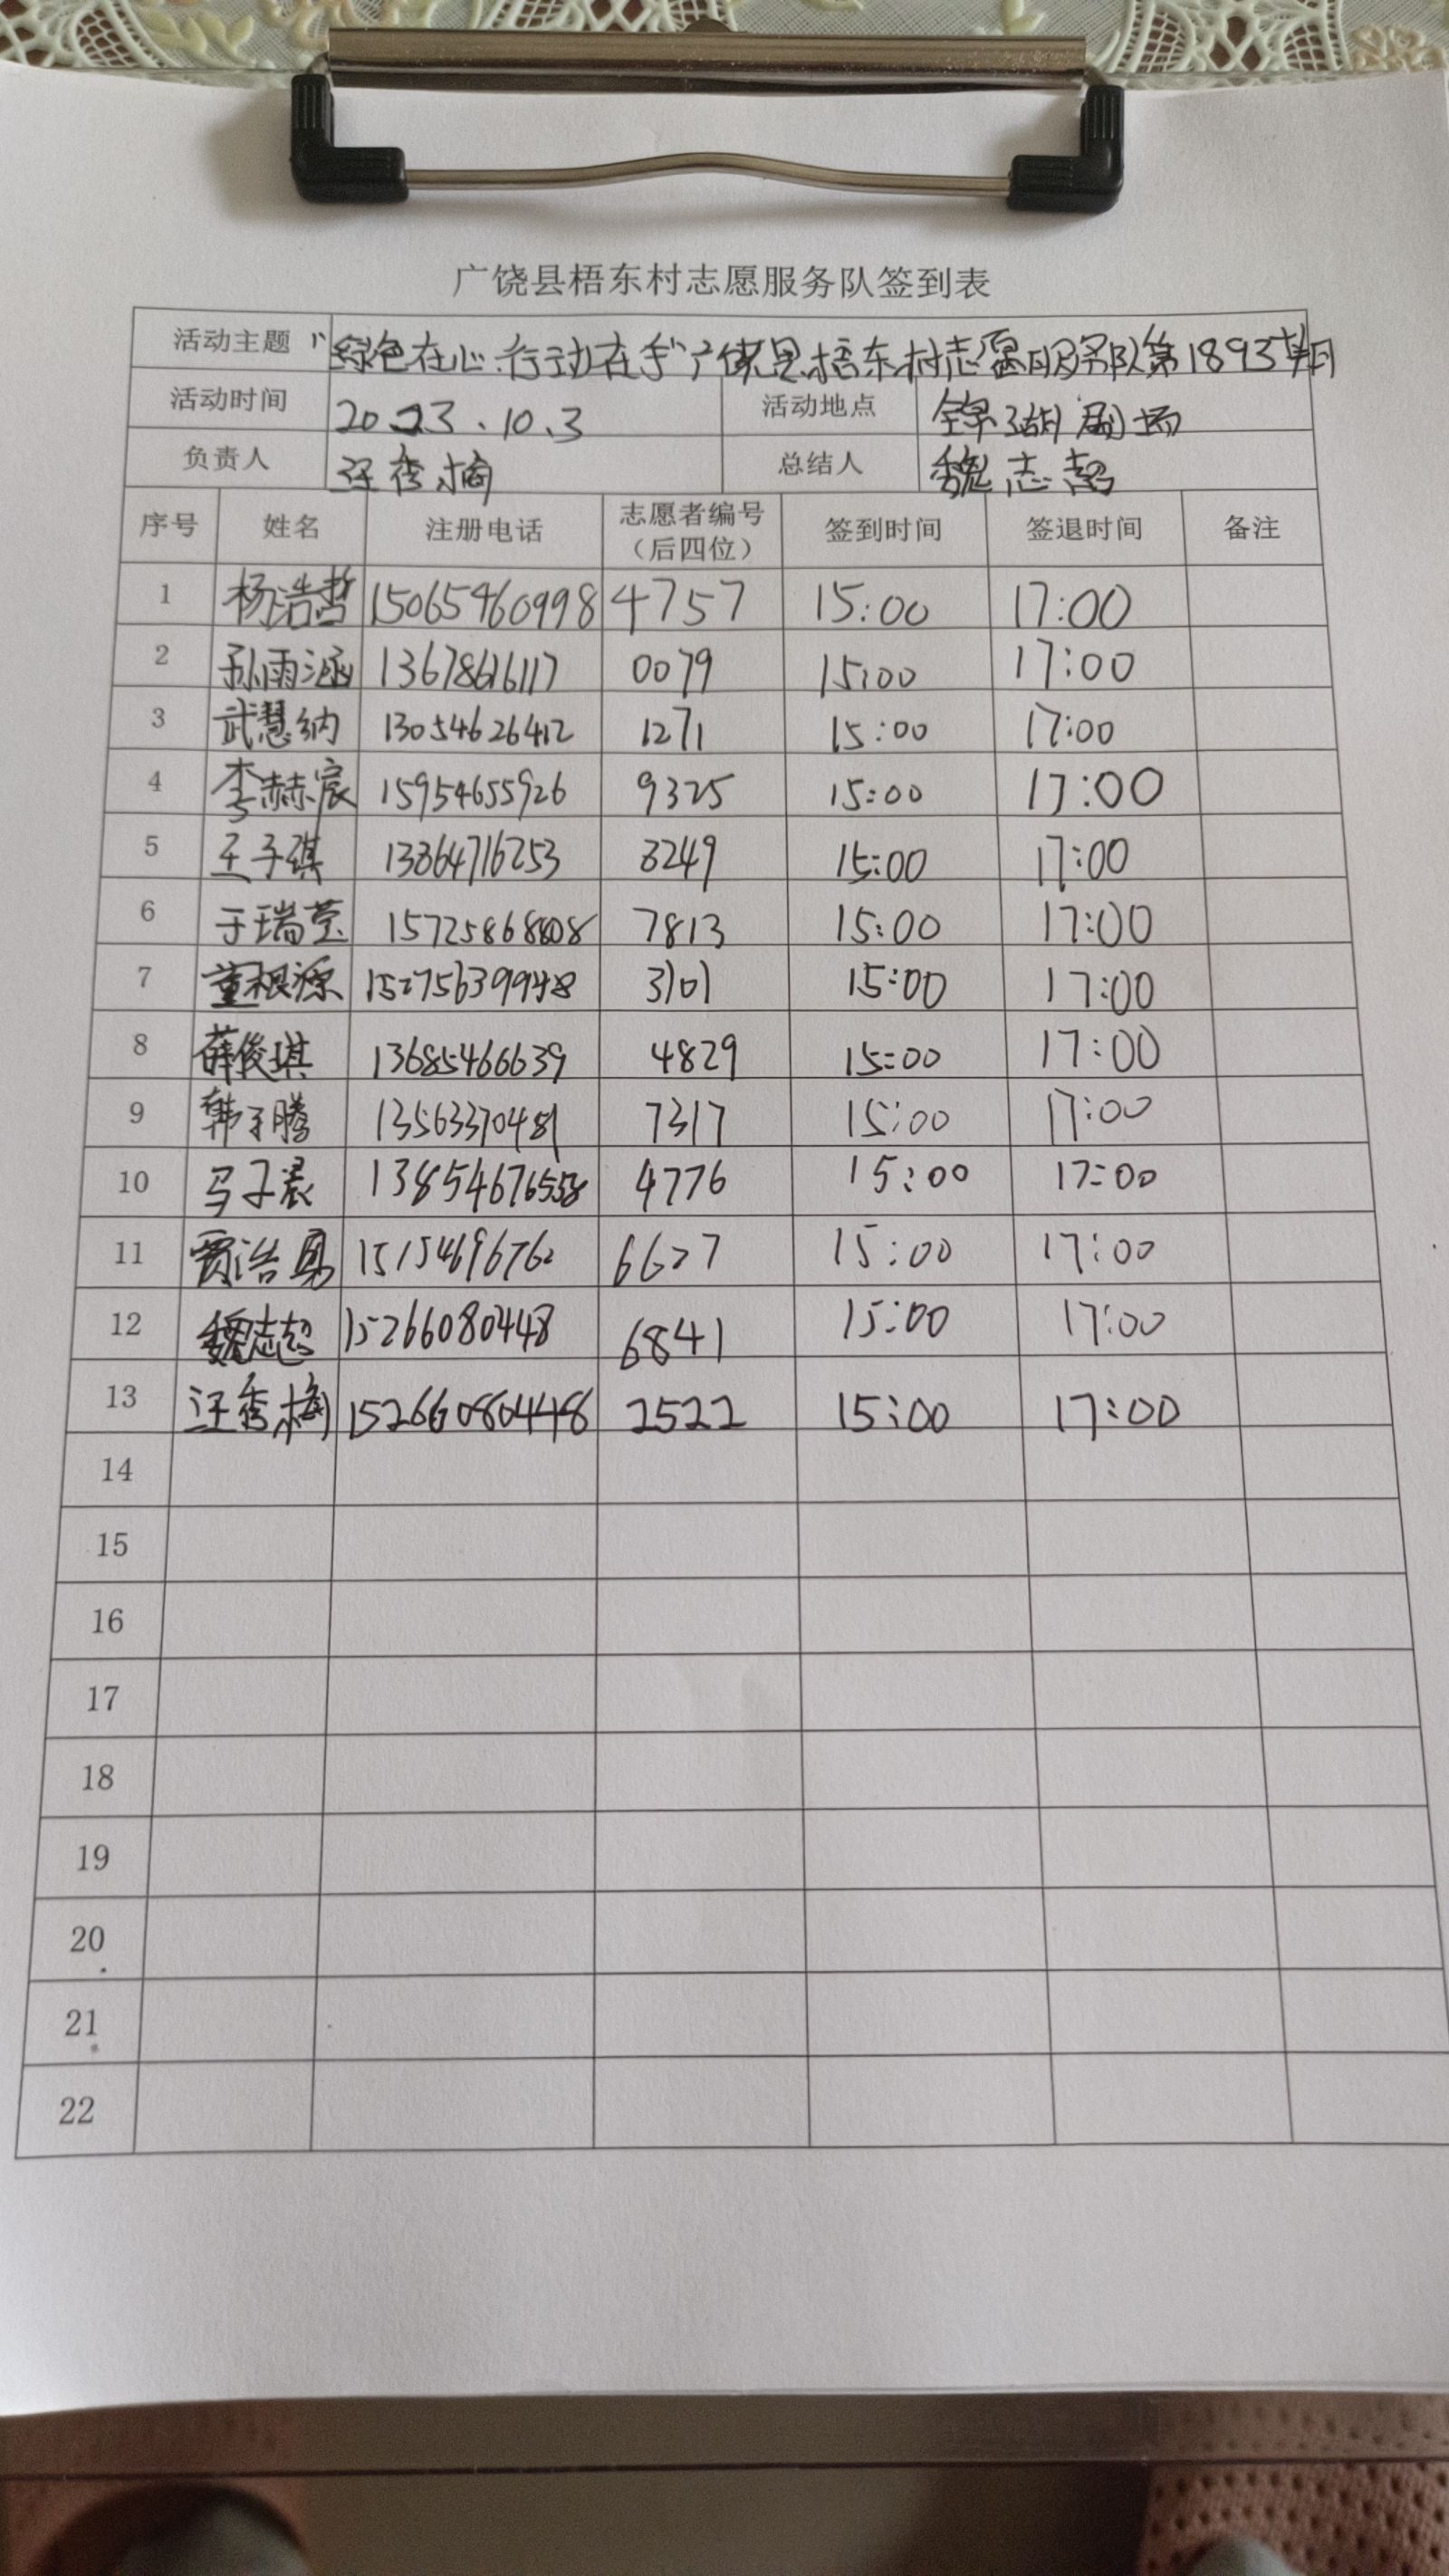 广饶县梧东村志愿服务队签到表
活动主题 "绿色在心.行动在手"广饶县梧东村志愿服务队第1893期
活动时间 2023.10.3 活动地点 锦湖剧场
负责人 汪秀梅 总结人 魏志超
序号 姓名 注册电话 志愿者编号（后四位） 签到时间 签退时间 备注
1 杨浩哲 15065460998 4757 15:00 17:00
2 孙雨涵 13678616117 0079 15:00 17:00
3 武慧纳 13054626412 1271 15:00 17:00
4 李赫宸 15954655926 9325 15:00 17:00
5 王子琪 13864716253 8249 15:00 17:00
6 于瑞莹 15725868808 7813 15:00 17:00
7 董根源 15275639948 3101 15:00 17:00
8 薛俊琪 13685466639 4829 15:00 17:00
9 韩子腾 13563370481 7317 15:00 17:00
10 马子宸 13854676558 4776 15:00 17:00
11 贾浩勇 15154696762 6627 15:00 17:00
12 魏志超 15266080448 6841 15:00 17:00
13 汪秀梅 15266080448 2522 15:00 17:00
14
15
16
17
18
19
20
21
22